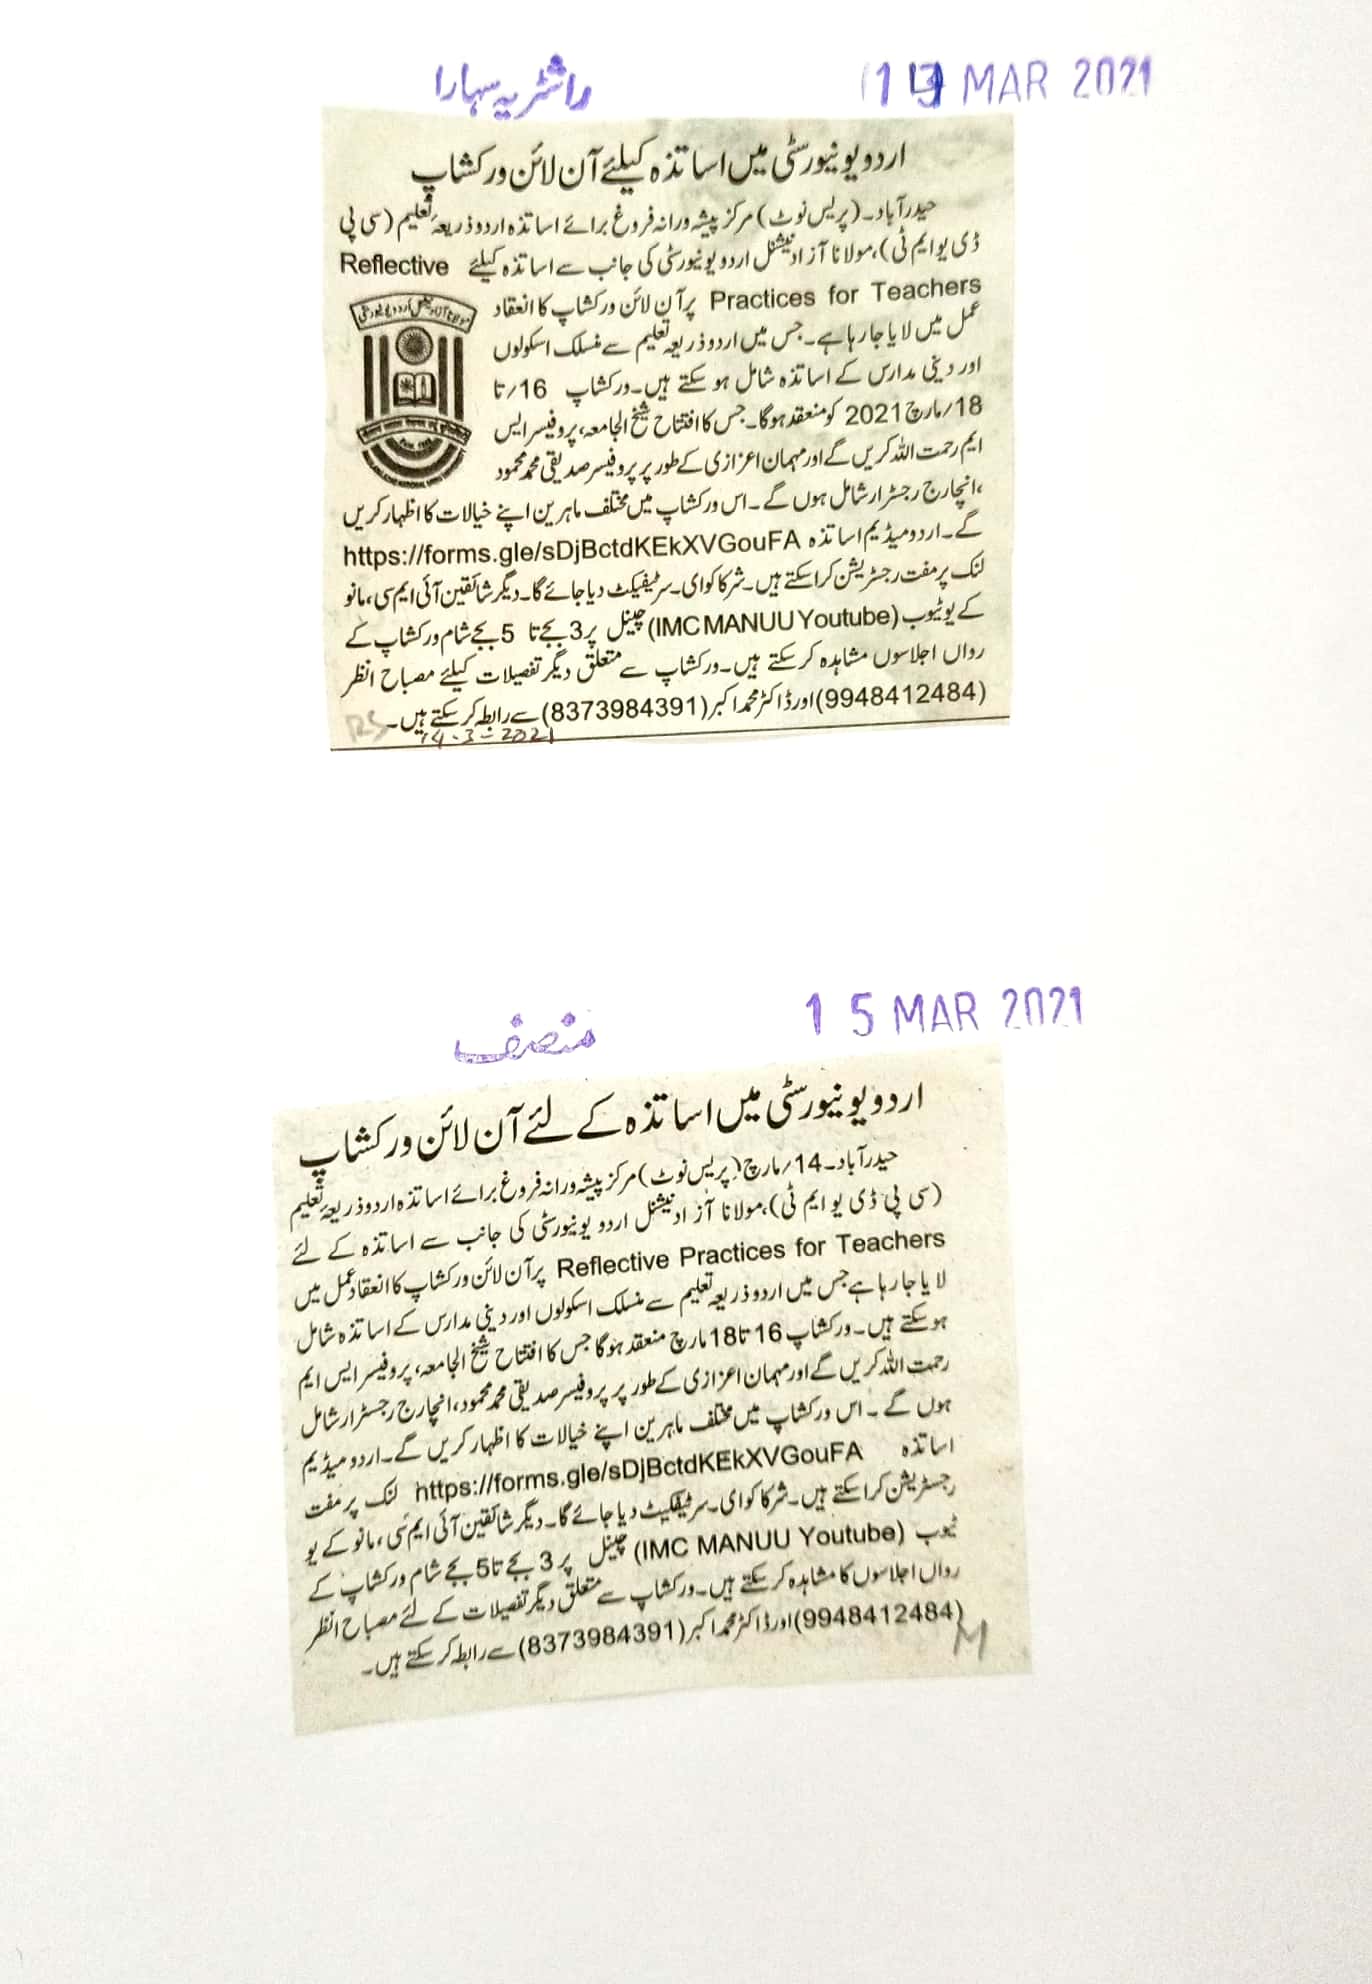 راشٹریہ سہارا
MAR 2021
اردو یونیورسٹی میں اساتذہ کیلئے آن لائن ورکشاپ
حیدرآباد۔ (پریس نوٹ) مرکز پیشہ ورانہ فروغ برائے اساتذہ اردو ذریعۂ تعلیم (سی پی
ڈی یو ایم ٹی)، مولانا آزاد نیشنل اردو یونیورسٹی کی جانب سے اساتذہ کیلئے Reflective
Practices for Teachers پر آن لائن ورکشاپ کا انعقاد
عمل میں لایا جارہا ہے۔ جس میں اردو ذریعہ تعلیم سے منسلک اسکولوں
اور دینی مدارس کے اساتذہ شامل ہوسکتے ہیں۔ ورکشاپ 16؍ تا
18؍ مارچ 2021 کو منعقد ہوگا۔ جس کا افتتاح شیخ الجامعہ، پروفیسر ایس
ایم رحمت اللہ کریں گے اور مہمان اعزازی کے طور پر پروفیسر صدیقی محمد محمود
،انچارج رجسٹرار شامل ہوں گے۔ اس ورکشاپ میں مختلف ماہرین اپنے خیالات کا اظہار کریں
گے۔ اردو میڈیم اساتذہ https://forms.gle/sDjBctdKEkXVGouFA
لنک پر مفت رجسٹریشن کراسکتے ہیں۔ شرکا کو ای۔ سرٹیفیکٹ دیا جائے گا۔ دیگر شائقین آئی ایم سی، مانو
کے یوٹیوب (IMC MANUU Youtube) چینل پر 3 بجے تا 5 بجے شام ورکشاپ کے
رواں اجلاسوں مشاہدہ کرسکتے ہیں۔ ورکشاپ سے متعلق دیگر تفصیلات کیلئے مصباح انظر
(9948412484) اور ڈاکٹر محمد اکبر (8373984391) سے رابطہ کرسکتے ہیں۔
RS
14-3-2021
مولانا آزاد نیشنل اردو یونیورسٹی
منصف
15 MAR 2021
اردو یونیورسٹی میں اساتذہ کے لئے آن لائن ورکشاپ
حیدرآباد۔ 14؍ مارچ (پریس نوٹ) مرکز پیشہ ورانہ فروغ برائے اساتذہ اردو ذریعۂ تعلیم
(سی پی ڈی یو ایم ٹی)، مولانا آزاد نیشنل اردو یونیورسٹی کی جانب سے اساتذہ کے لئے
Reflective Practices for Teachers پر آن لائن ورکشاپ کا انعقاد عمل میں
لایا جارہا ہے جس میں اردو ذریعہ تعلیم سے منسلک اسکولوں اور دینی مدارس کے اساتذہ شامل
ہوسکتے ہیں۔ ورکشاپ 16 تا 18 مارچ منعقد ہوگا جس کا افتتاح شیخ الجامعہ، پروفیسر ایس ایم
رحمت اللہ کریں گے اور مہمان اعزازی کے طور پر پروفیسر صدیقی محمد محمود، انچارج رجسٹرار شامل
ہوں گے۔ اس ورکشاپ میں مختلف ماہرین اپنے خیالات کا اظہار کریں گے۔ اردو میڈیم
اساتذہ https://forms.gle/sDjBctdKEkXVGouFA لنک پر مفت
رجسٹریشن کراسکتے ہیں۔ شرکا کو ای۔ سرٹیفکیٹ دیا جائے گا۔ دیگر شائقین آئی ایم سی، مانو کے یو
ٹیوب (IMC MANUU Youtube) چینل پر 3 بجے تا 5 بجے شام ورکشاپ کے
رواں اجلاسوں کا مشاہدہ کرسکتے ہیں۔ ورکشاپ سے متعلق دیگر تفصیلات کے لئے مصباح انظر
(9948412484) اور ڈاکٹر محمد اکبر (8373984391) سے رابطہ کرسکتے ہیں۔
M